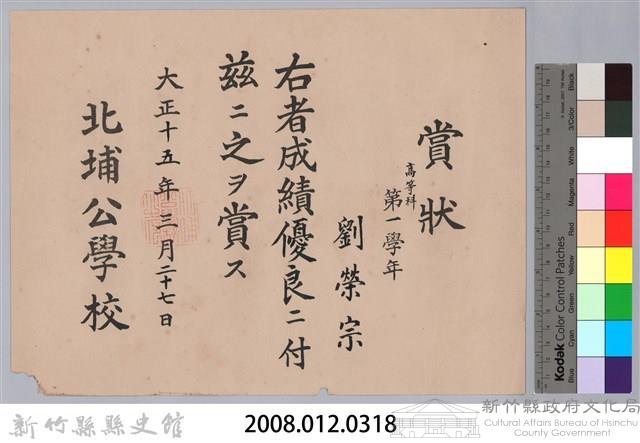 賞狀
高等科
第一學年
劉榮宗
右者成績優良ニ付
茲ニ之ヲ賞ス
大正十五年三月二十七日
北埔公學校
Black
3/Color
White
Magenta
Red
Yellow
Green
Cyan
Blue
Kodak Color Control Patches
新竹縣縣史館
2008.012.0318
新竹縣政府文化局
Cultural Affairs Bureau of Hsinchu
County Government